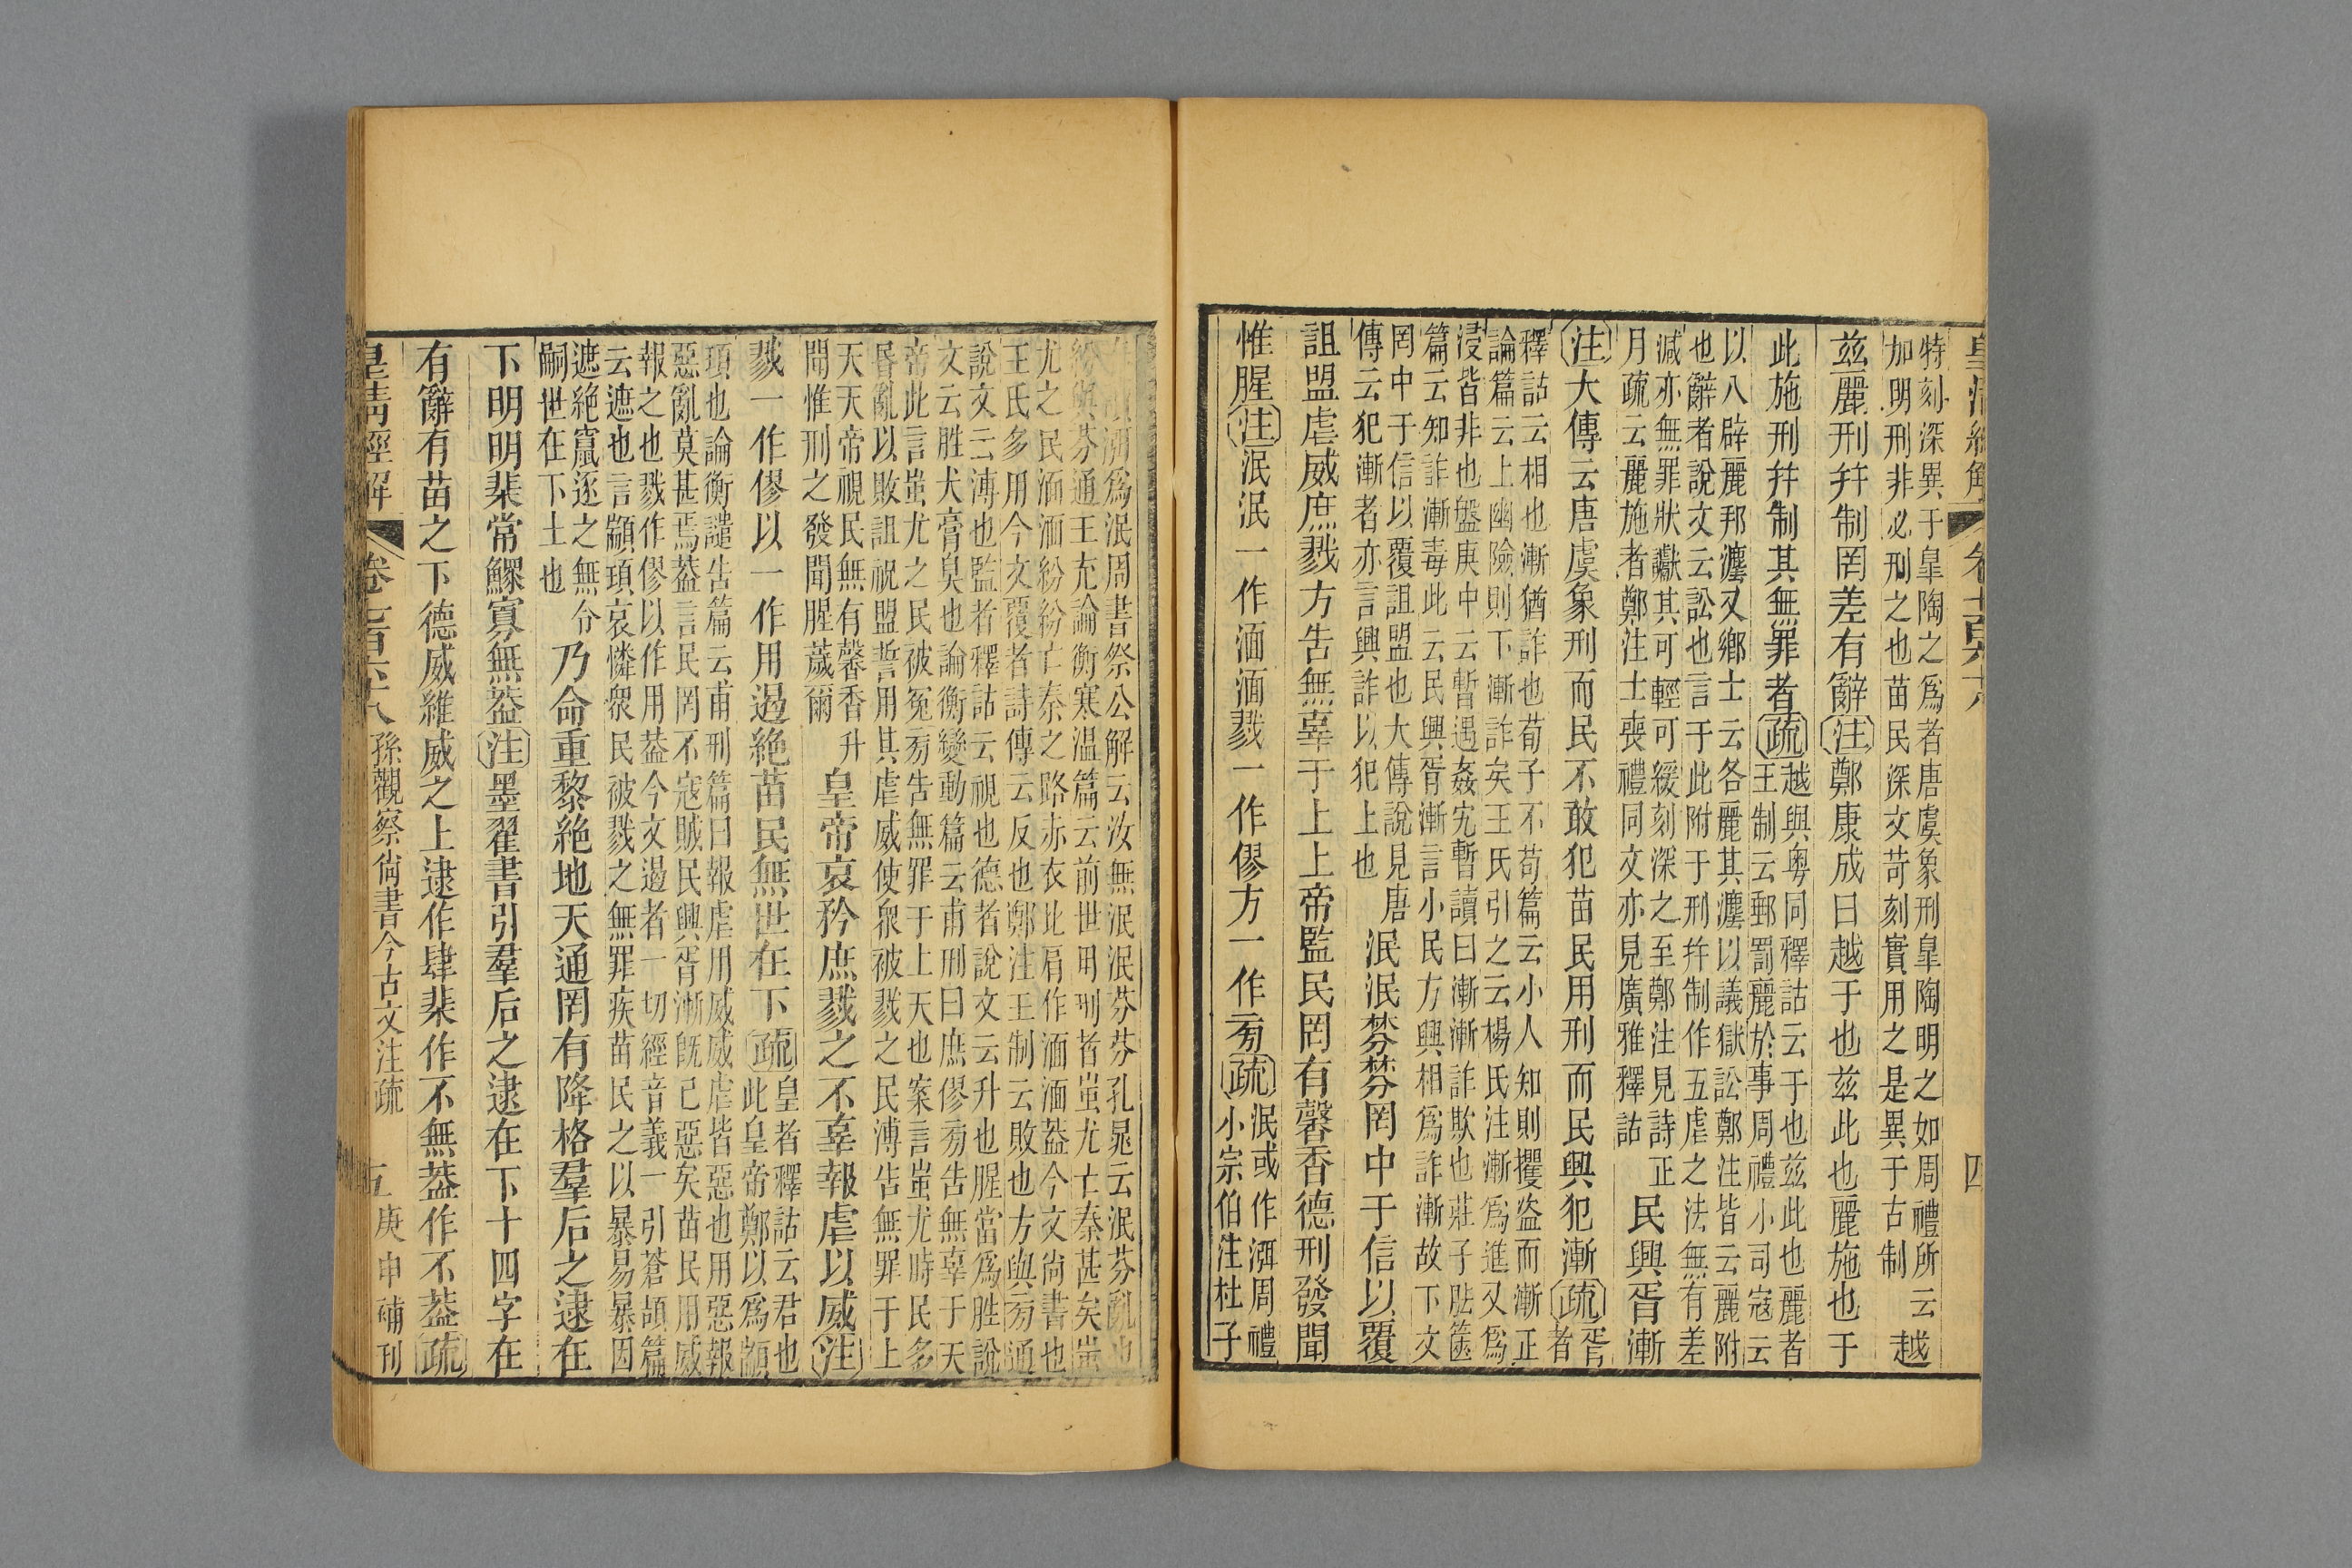 特刻深異于皐陶之爲者唐虞象刑皐陶明之如周禮所云
加明刑非必刑之也苗民深文苛刻實用之是異于古制
越
兹麗刑幷制罔差有辭注鄭康成曰越于也兹此也麗施也于
此施刑幷制其無罪者疏
越與粤同釋詁云于也兹此也麗者
王制云郵罰麗於事周禮小司寇云
以八辟麗邦灋又鄉士云各麗其灋以議獄訟鄭注皆云麗附
也辭者說文云訟也言于此附于刑幷制作五虐之法無有差
減亦無罪狀讞其可輕可緩刻深之至鄭注見詩正
月疏云麗施者鄭注士喪禮同文亦見廣雅釋詁
民興胥漸
注大傳云唐虞象刑而民不敢犯苗民用刑而民興犯漸疏
胥
者
釋詁云相也漸猶詐也荀子不苟篇云小人知則攫盜而漸正
論篇云上幽險則下漸詐矣王氏引之云楊氏注漸爲進又爲
浸皆非也盤庚中云暫遇姦宄暫讀曰漸漸詐欺也莊子胠篋
篇云知詐漸毒此云民興胥漸言小民方興相爲詐漸故下文
罔中于信以覆詛盟也大傳說見唐
傳云犯漸者亦言興詐以犯上也
泯泯棼棼罔中于信以覆
詛盟虐威庶戮方告無辜于上上帝監民罔有馨香德刑發聞
惟腥注泯泯一作湎湎戮一作僇方一作㫄疏
泯或作湎周禮
小宗伯注杜子
春讀湎爲泯周書祭公解云汝無泯泯芬芬孔晁云泯芬亂也
紛與芬通王充論衡寒温篇云前世用刑者蚩尤亡秦甚矣蚩
尤之民湎湎紛紛亡秦之路赤衣比肩作湎湎葢今文尙書也
王氏多用今文覆者詩傳云反也鄭注王制云敗也方與㫄通
說文云溥也監者釋詁云視也德者說文云升也腥當爲胜說
文云胜犬膏臭也論衡變動篇云甫刑曰庶僇㫄告無辜于天
帝此言蚩尤之民被冤㫄告無罪于上天也案言蚩尤時民多
昬亂以敗詛祝盟誓用其虐威使衆被戮之民溥告無罪于上
天天帝視民無有馨香升
聞惟刑之發聞腥薉爾
皇帝哀矜庶戮之不辜報虐以威注
戮一作僇以一作用遏絶苗民無世在下疏
皇者釋詁云君也
此皇帝鄭以爲顓
頊也論衡譴告篇云甫刑篇曰報虐用威威虐皆惡也用惡報
惡亂莫甚焉葢言民罔不寇賊民興胥漸旣已惡矣苗民用威
報之也戮作僇以作用葢今文遏者一切經音義一引蒼頡篇
云遮也言顓頊哀憐衆民被戮之無罪疾苗民之以暴易暴因
遮絶竄逐之無令
嗣世在下土也
乃命重黎絶地天通罔有降格羣后之逮在
下明明棐常鰥寡無葢注墨翟書引羣后之逮在下十四字在
有辭有苗之下德威維威之上逮作肆棐作不無葢作不葢疏
皇淸經解 卷七百六十八 孫觀察尙書今古文注疏 五 庚申補刊